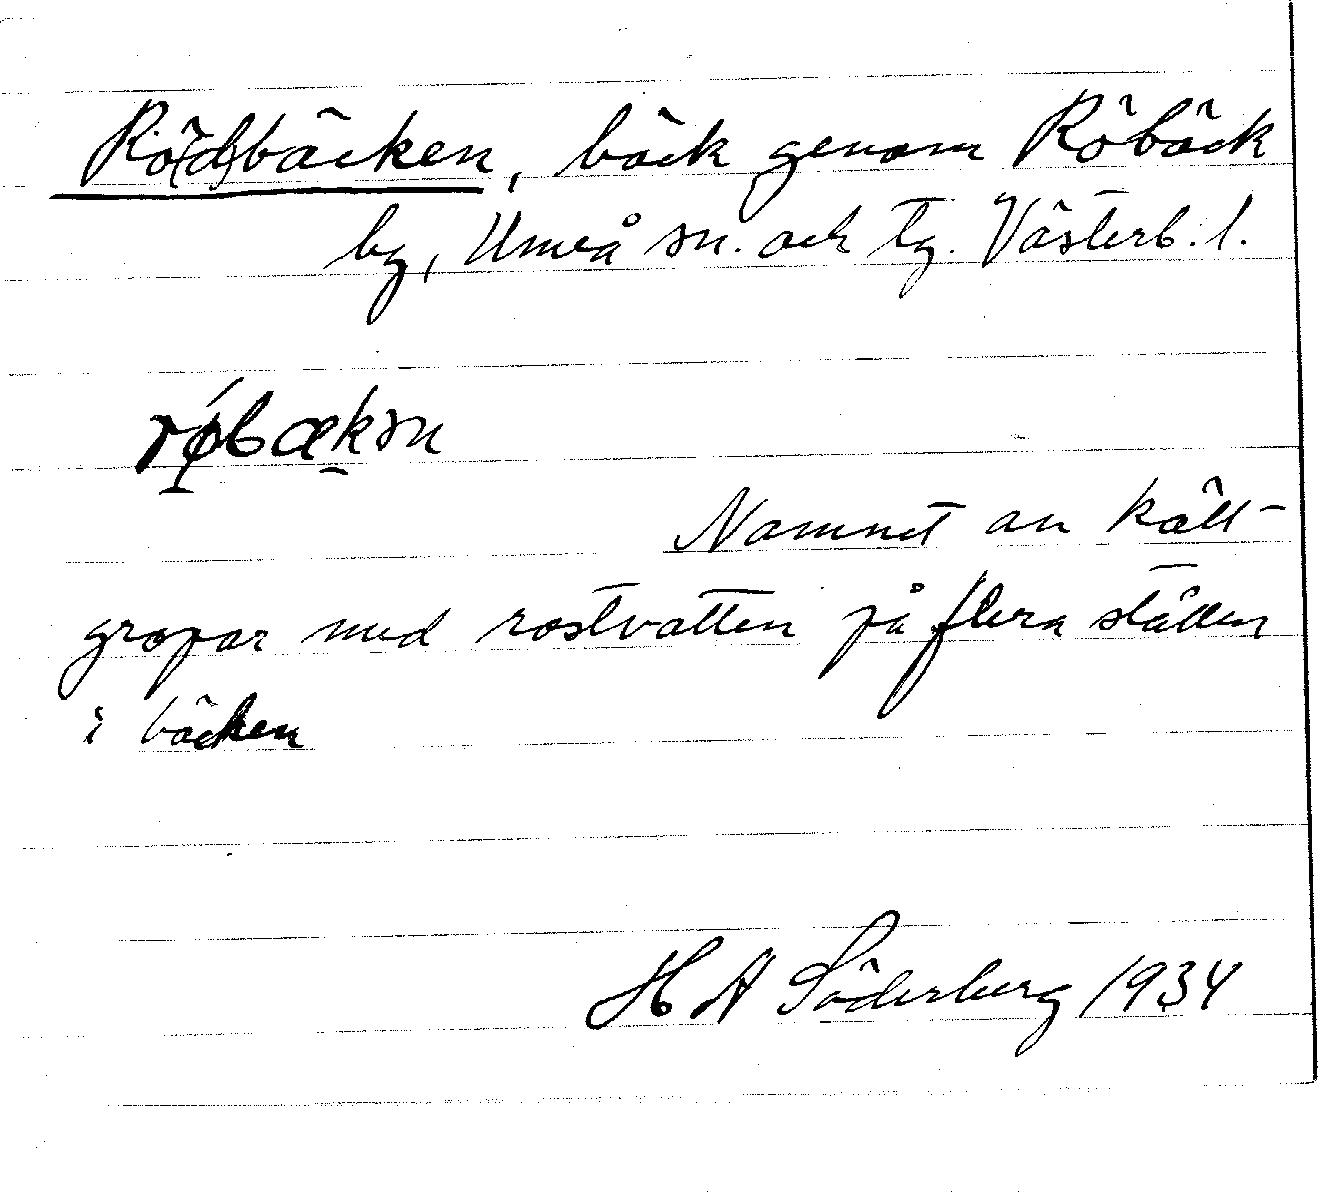 Rö(d)bäcken, bäck genom Röbäck
by, Umeå sn. och tg. Västerb. l.
røbækən
Namnet av käll-
gropar med rostvatten på flera ställen
i bäcken
H A Söderberg 1934